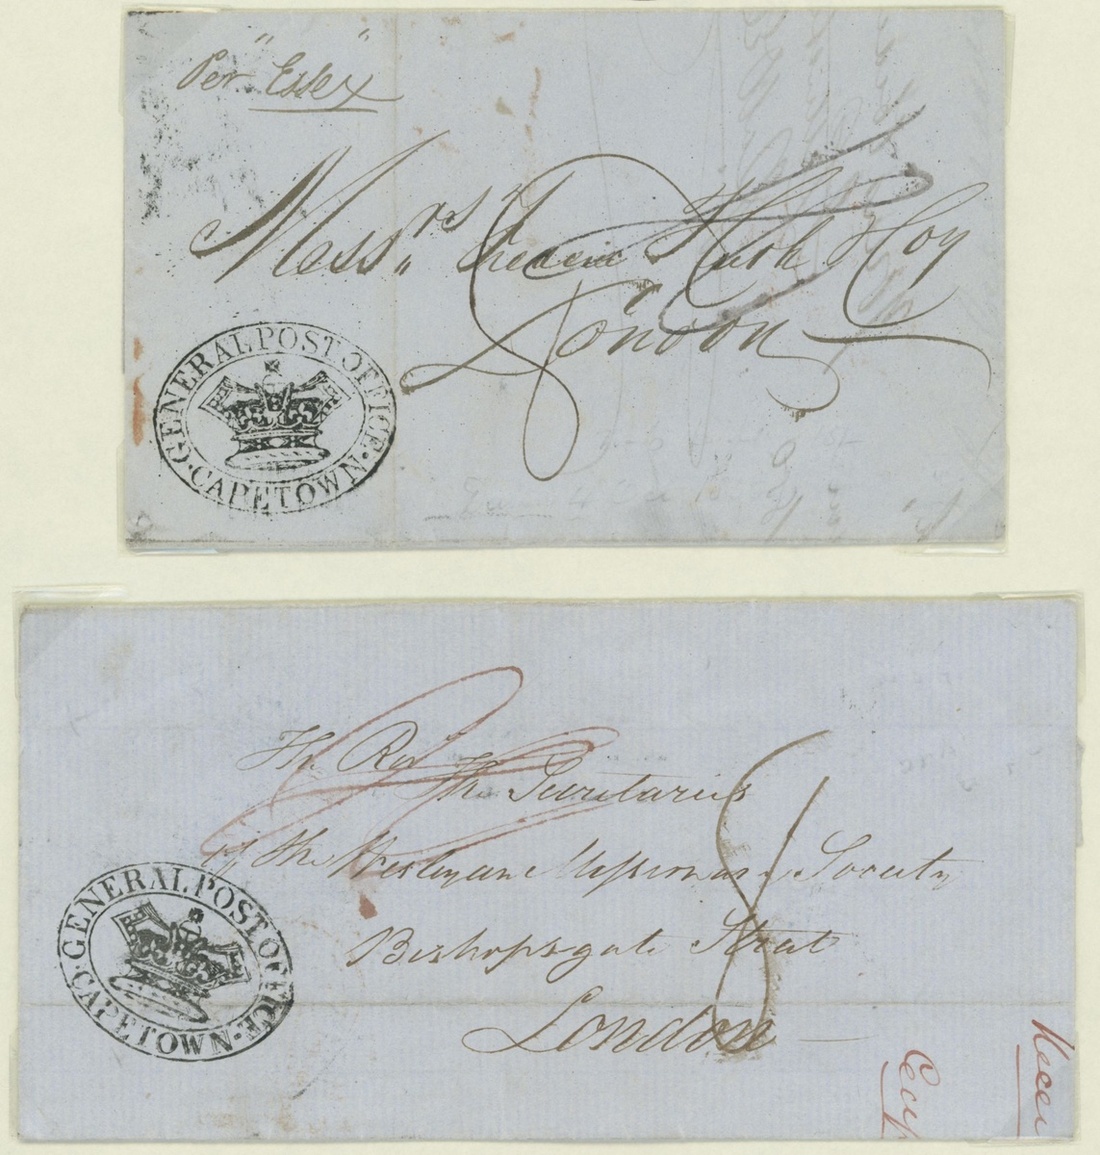 Per "Essex"
Messrs Frederic Huth & Coy
London
8
GENERAL POST OFFICE
CAPETOWN
The Revd The Secretaries
of the Wesleyan Missionary Society
Bishopsgate Street
London
8
GENERAL POST OFFICE
CAPETOWN